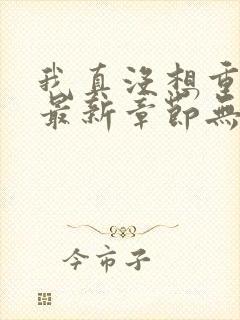 我真没想重
最新章節無
今市子